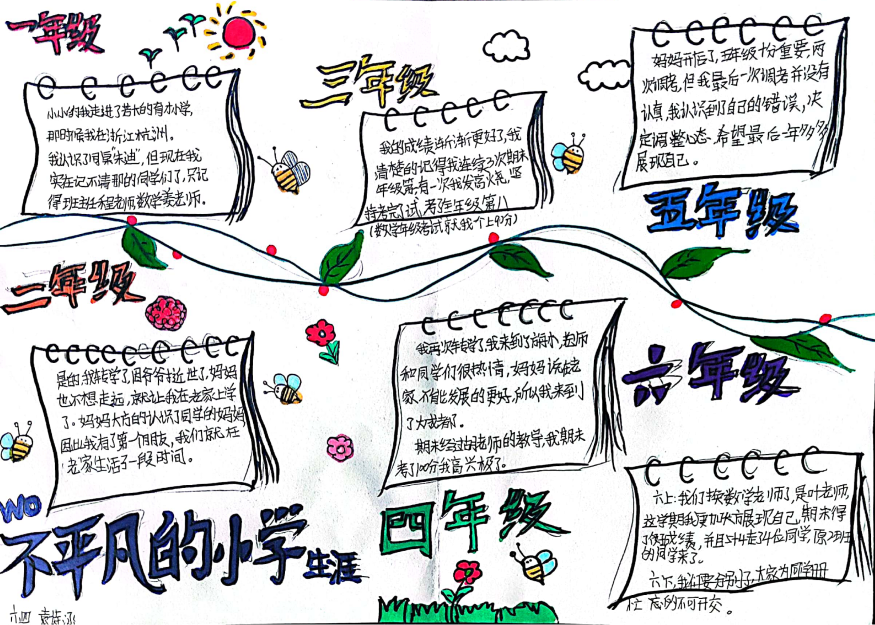 一年级
小小的我走进了若大的育才小学,
那时候我在浙江杭洲。
我认识了同桌"朱迪",但现在我
实在记不清那的同学们了,只记
得班主任程老师,数学姜老师。
二年级
是的,我转学了,因爷爷去世了,妈妈
也不想走远,就让我在老家上学
了。妈妈大方的认识了同学的妈妈
因此我有了第一个朋友,我们就在
老家生活了一段时间。
三年级
我的成绩渐渐更好了,我
清楚的记得我连续3次期末
年级第,有一次我发高烧,坚
持考完了试,考了全年级第八
(数学年级考试,就我个上90分)
四年级
我再次转学了,我来到了,老师
和同学们很热情,妈妈说在老
家不能发展的更好,所以我来到
了大成都了。
期末经过老师的教导,我期末
考了100分我高兴极了。
五年级
妈妈开店了,五年级十分重要,两
次调考,但我最后一次调考并没有
认真,我认识到了自己的错误,决
定调整心态,希望最后一年多多
展现自己。
六年级
六上:我们换数学老师了,是叶老师,
这学期我更加大方展现自己,期末得
了成绩,并且544走了4位同学,原2班
的同学来了。
六下,我们要分别了,大家为同学册
忙忘的不可开交。
WO
不平凡的小学生涯
六四